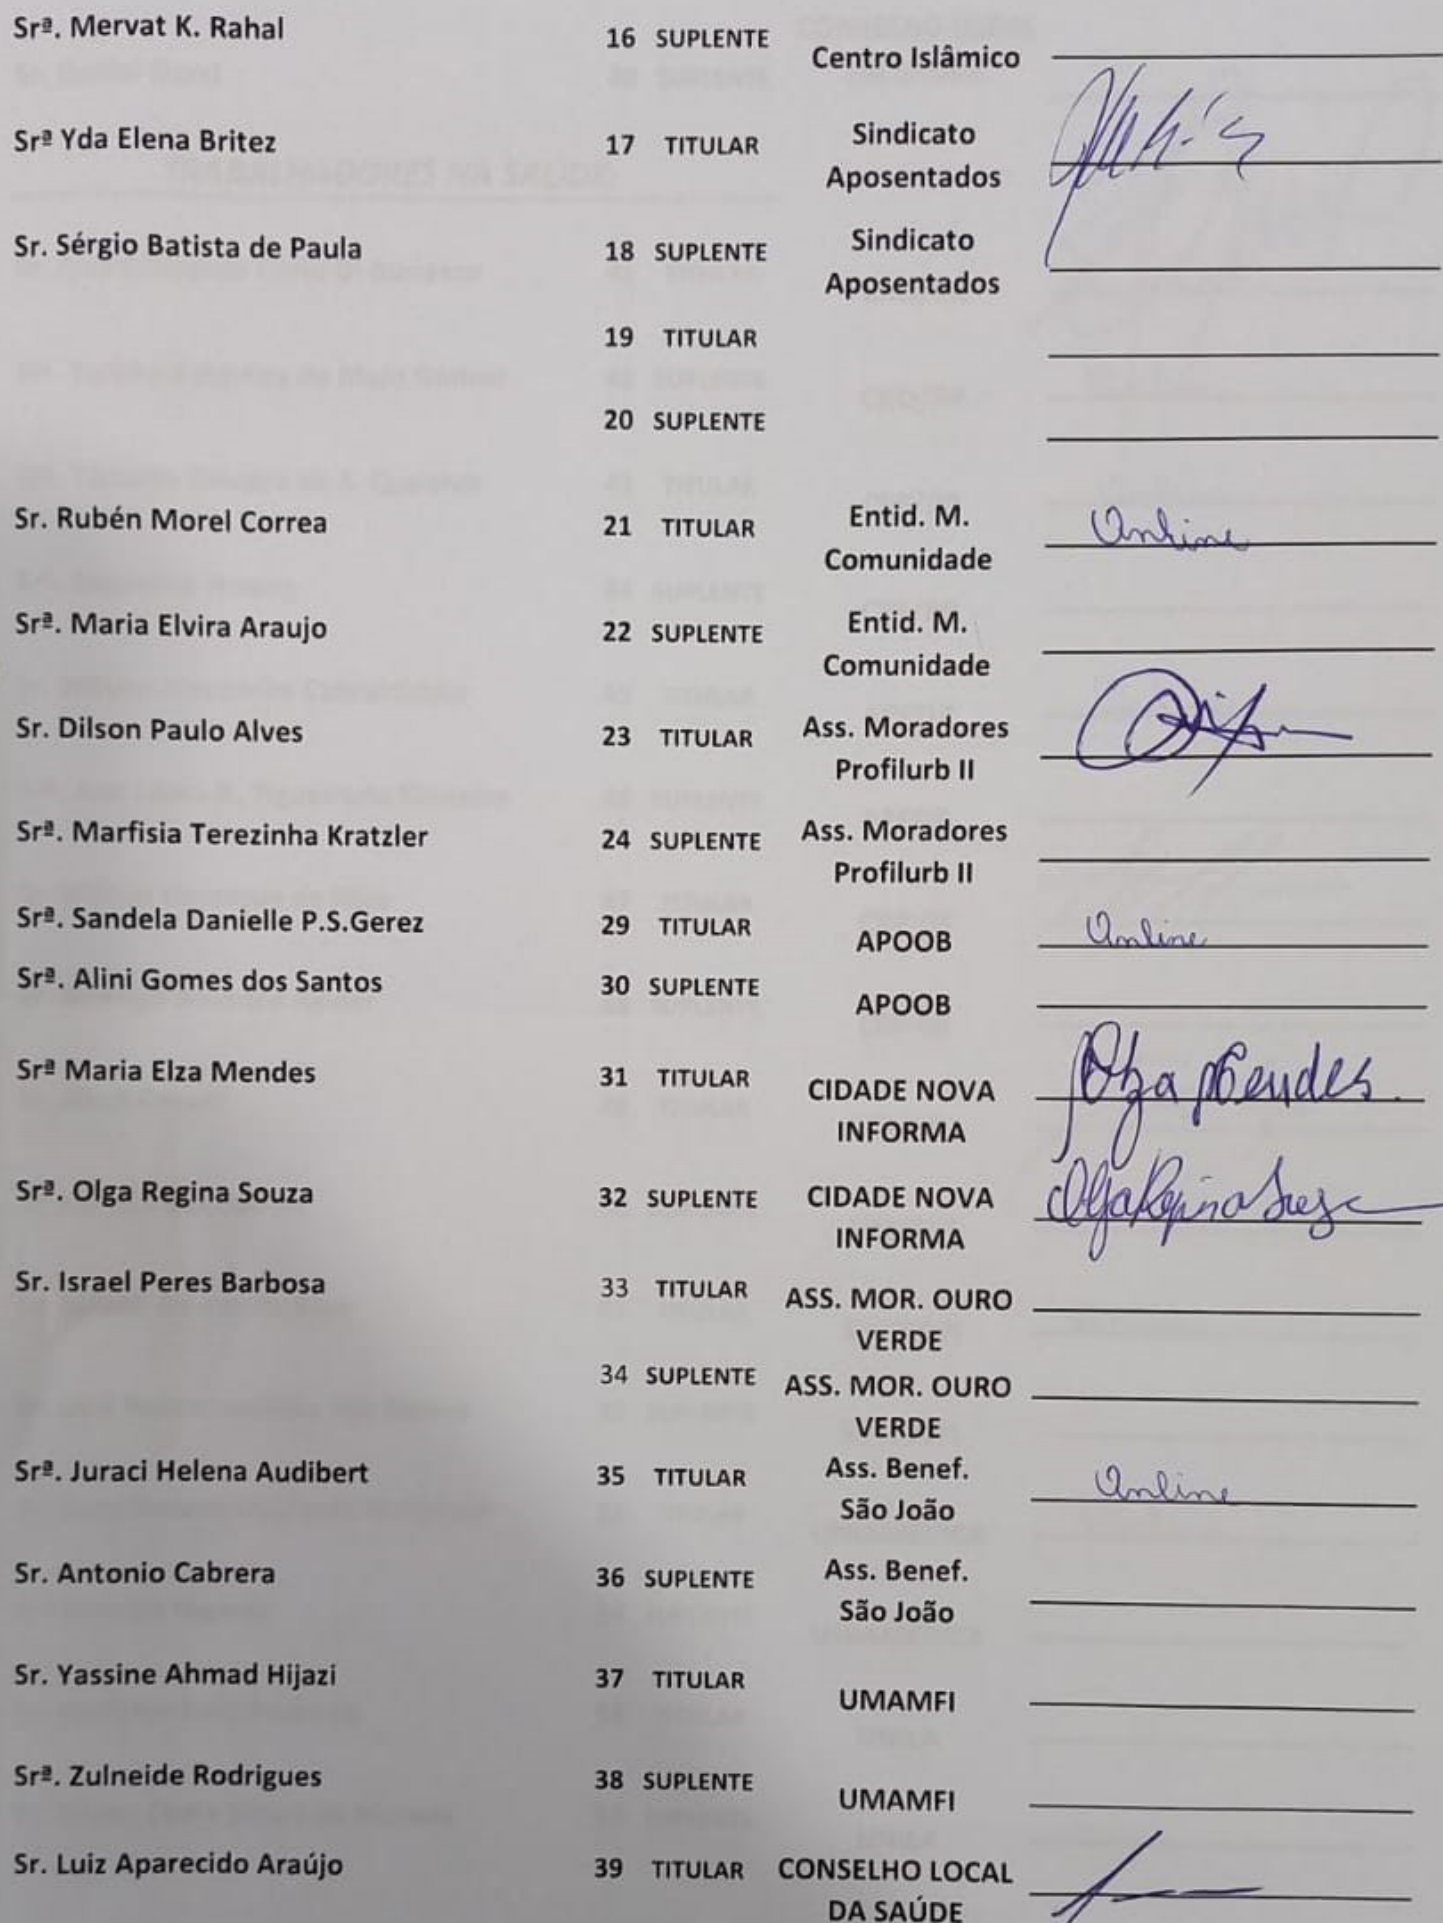 Srª. Mervat K. Rahal 16 SUPLENTE Centro Islâmico
Srª Yda Elena Britez 17 TITULAR Sindicato
Aposentados
Sr. Sérgio Batista de Paula 18 SUPLENTE Sindicato
Aposentados
19 TITULAR
20 SUPLENTE
Sr. Rubén Morel Correa 21 TITULAR Entid. M. Online
Comunidade
Srª. Maria Elvira Araujo 22 SUPLENTE Entid. M.
Comunidade
Sr. Dilson Paulo Alves 23 TITULAR Ass. Moradores
Profilurb II
Srª. Marfisia Terezinha Kratzler 24 SUPLENTE Ass. Moradores
Profilurb II
Srª. Sandela Danielle P.S.Gerez 29 TITULAR APOOB Online
Srª. Alini Gomes dos Santos 30 SUPLENTE APOOB
Srª Maria Elza Mendes 31 TITULAR CIDADE NOVA Elza Mendes.
INFORMA
Srª. Olga Regina Souza 32 SUPLENTE CIDADE NOVA Olga Regina Souza
INFORMA
Sr. Israel Peres Barbosa 33 TITULAR ASS. MOR. OURO
VERDE
34 SUPLENTE ASS. MOR. OURO
VERDE
Srª. Juraci Helena Audibert 35 TITULAR Ass. Benef. Online
São João
Sr. Antonio Cabrera 36 SUPLENTE Ass. Benef.
São João
Sr. Yassine Ahmad Hijazi 37 TITULAR UMAMFI
Srª. Zulneide Rodrigues 38 SUPLENTE UMAMFI
Sr. Luiz Aparecido Araújo 39 TITULAR CONSELHO LOCAL
DA SAÚDE